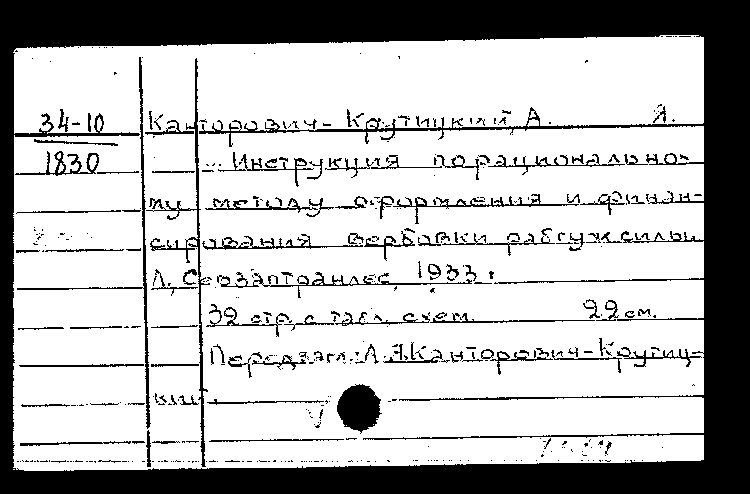 34-10 Канторович-Крутицкий, А. Я.
1830 ... Инструкция по рационально-
му методу оформления и финан-
сирования вербовки рабгужсилы
Л., Севзаптранлес, 1933.
32 стр, с табл. схем. 22 см.
Передзагл.: А. Я. Канторович-Крутиц-
кий.